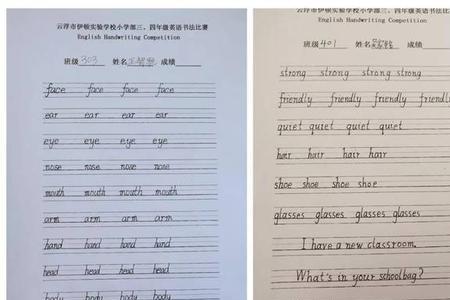 云浮市伊顿实验学校小学部三、四年级英语书法比赛
English Handwriting Competition
班级 303 姓名 成绩
face face face face
ear ear ear ear
eye eye eye eye
nose nose nose nose
mouth mouth mouth mouth
arm arm arm arm
hand hand hand hand
head head head head
body body body body
云浮市伊顿实验学校小学部三、四年级英语书法比赛
English Handwriting Competition
班级 401 姓名 成绩
strong strong strong strong
friendly friendly friendly friendly
quiet quiet quiet quiet
hair hair hair hair
shoe shoe shoe shoe
glasses glasses glasses glasses
I have a new classroom.
What's in your schoolbag?